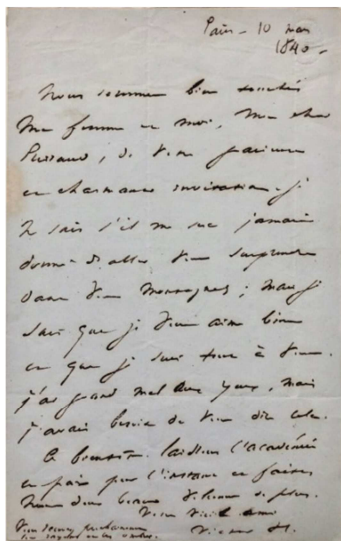 Paris - 10 mars
1840.
Nous sommes bien touchés
Ma femme et moi, Mon cher
de votre gracieuse
et charmante invitation. je
ne sais s'il me sera jamais
donné d'aller vous surprendre
dans vos montagnes ; mais je
sais que je vous aime bien
et que je suis tout à vous.
j'ai grand mal aux yeux, mais
j'avais besoin de vous dire cela.
à bientôt. laissons l'académie
en paix pour l'instant et faites
nous deux beaux de plus.
Votre vieil ami
Victor H.